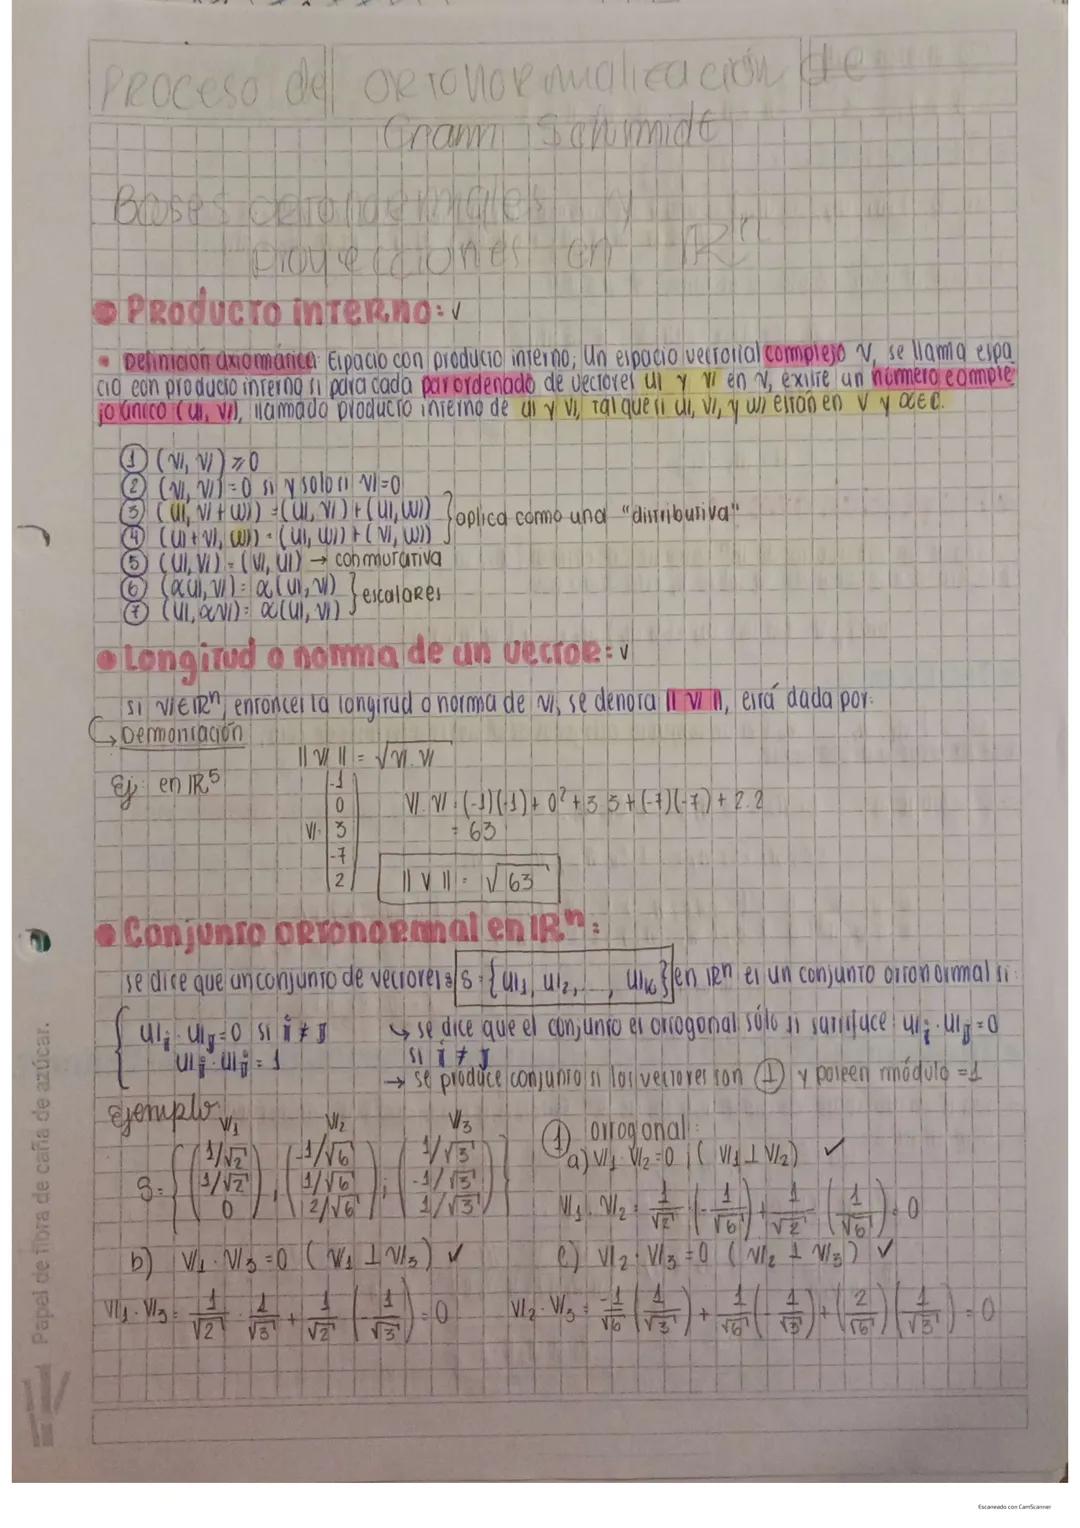 Proceso de ortonormalización de
Gram Schmidt
Bases ortonormales y
proyecciones en ℝⁿ
• Producto interno: ✓
• Definición axiomática: Espacio con producto interno; Un espacio vectorial complejo V, se llama espa
cio con producto interno si para cada par ordenado de vectores u y v en V, existe un número comple
jo único (u, v), llamado producto interno de u y v, tal que si u, v, y w están en V y α∈C.
① (v, v) ≥ 0
② (v, v) = 0 si y solo si v=0
③ (u, v+w) = (u, v) + (u, w)
④ (u+v, w) = (u, w) + (v, w) } aplica como una "distributiva"
⑤ (u, v) = (v, u) → conmutativa
⑥ (αu, v) = α(u, v)
⑦ (u, αv) = α(u, v) } escalares
• Longitud o norma de un vector: ✓
si v∈ℝⁿ, entonces la longitud o norma de v, se denota ||v||, está dada por:
↳ Demostación
||v|| = √v.v
Ej: en ℝ⁵
v: |-1 0 3 -7 2|
v.v : (-1)(-1) + 0² + 3.3 + (-7)(-7) + 2.2
= 63
||v|| = √63
• Conjunto ortonormal en ℝⁿ:
se dice que un conjunto de vectores S = {u₁, u₂, ..., uₖ} en ℝⁿ es un conjunto ortonormal si:
{ uᵢ · uⱼ = 0 si i ≠ j
uᵢ · uᵢ = 1
↳ se dice que el conjunto es ortogonal sólo si satisface uᵢ · uⱼ = 0
si i ≠ j
→ se produce conjunto si los vectores son ① y poseen módulo = 1
Ejemplo:
v₁ v₂ v₃
S = { (1/√2, 1/√2, 0), (-1/√6, 1/√6, 2/√6), (1/√3, -1/√3, 1/√3) }
① ortogonal:
a) v₁ · v₂ = 0 ; (v₁ ⊥ v₂) ✓
v₁ · v₂ = 1/√2 (-1/√6) + 1/√2 (1/√6) = 0
b) v₁ · v₃ = 0 (v₁ ⊥ v₃) ✓
v₁ · v₃ = 1/√2 · 1/√3 + 1/√2 (-1/√3) = 0
c) v₂ · v₃ = 0 (v₂ ⊥ v₃) ✓
v₂ · v₃ = -1/√6 (1/√3) + 1/√6 (-1/√3) + (2/√6)(1/√3) = 0
Papel de fibra de caña de azúcar.
Escaneado con CamScanner